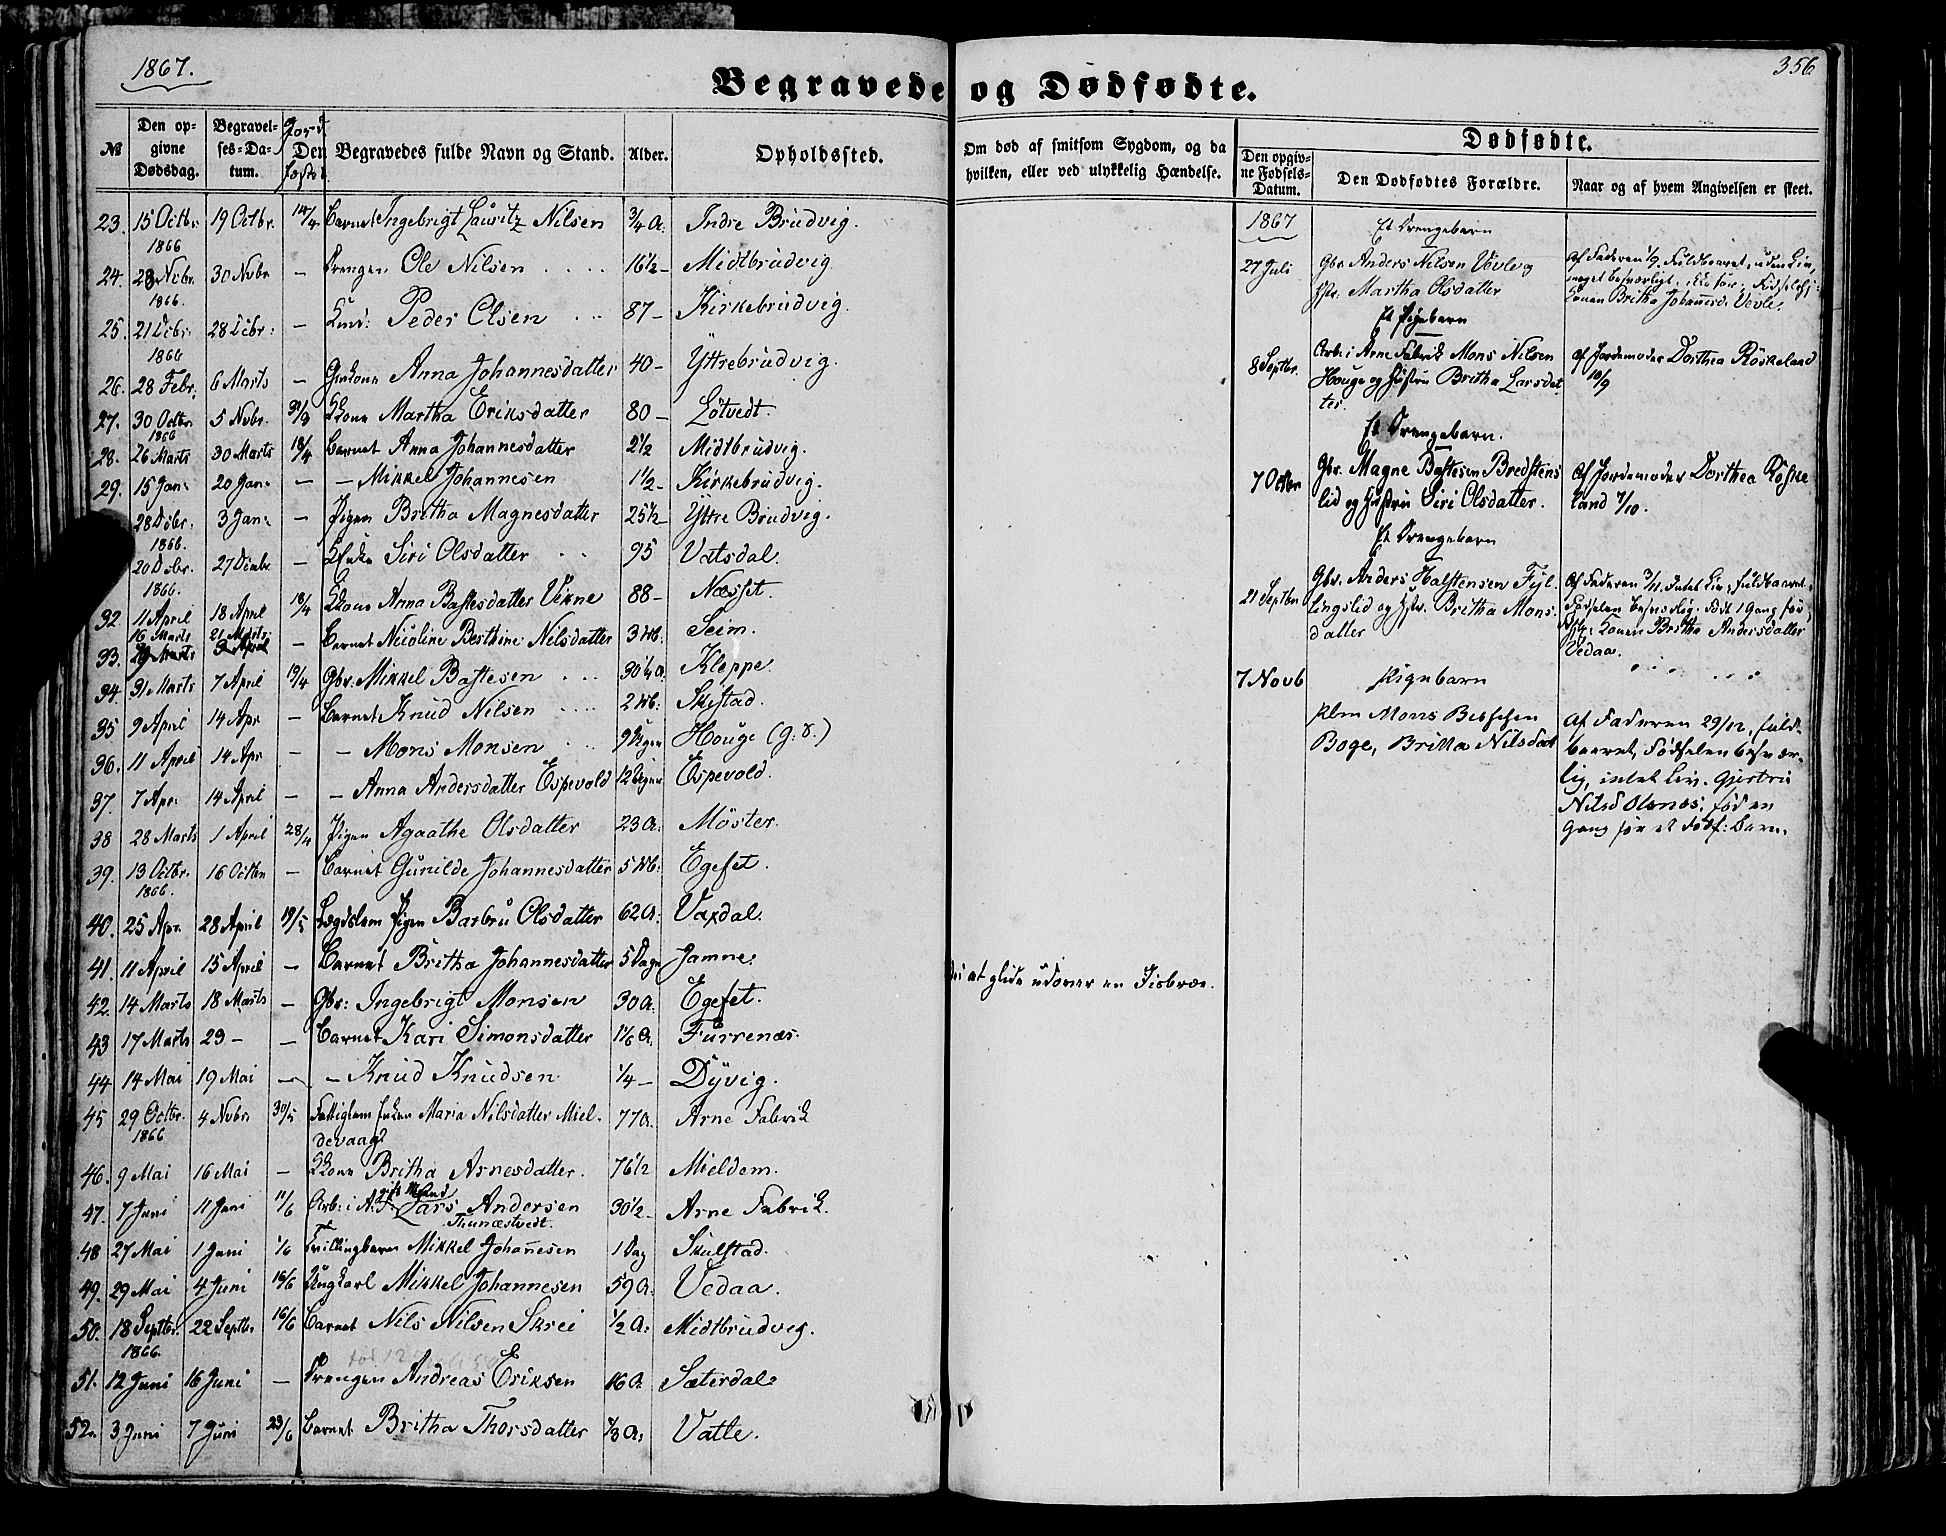 1867.
356
Begravede og Dødfødte.
№ Den opgivne Dødsdag. Begravelses-Datum. Jordfæstet Den Begravedes fulde Navn og Stand. Alder. Opholdssted.
Om død af smitsom Sygdom, og da hvilken, eller ved ulykkelig Hændelse.
Dødfødte.
Den opgivne Fødsels-Datum. Den Dødfødtes Forældre. Naar og af hvem Angivelsen er skeet.
23. 15 Octbr. 1866 19 Octbr. 14/4. Barnet Ingebrigt Lauritz Nilsen 3/4 A. Indre Brudvig.
24. 28 Nvbr. 1866 30 Nvbr — Drengen Ole Nilsen 16 1/2 — Midtbrudvig
25. 21 Dcbr. 1866 28 Dcbr: — Peder Olsen 87 — Kirkebrudvig.
26. 28 Febr. 6 Marts — Gmkone Anna Johannesdatter 40 — Yttrebrudvig.
27. 30 Octbr. 1866 5 Nvbr. Kone Martha Eriksdatter 80 — Løtvedt.
28. 26 Marts 30 Marts 18/4 Barnet Anna Johannesdatter 2 1/2 Midtbrudvig.
29. 15 Jan: 20 Jan: — — Mikkel Johannesen 1 1/2 — Kirkebrudvig.
28 Dcbr. 1866. 3 Jan: — Pigen Britha Magnesdatter 25 1/2 — Yttre Brudvig.
20 Dcbr. 1866. 27 Dcmbr. — Enke Siri Olsdatter 95 Vatsdal.
32 11 April 18 April 18/4 Kone Anna Bastesdatter Vikne 88 — Næsset.
33. 16 Marts 21 Marts — Barnet Nicoline Berthine Nilsdatter 3 Mb. Seim.
34. 31 Marts 7 April 19/4 Gbr. Mikkel Bastesen 30 1/2 A. Kleppe.
35 9 April 14 Apr — Barnet Knud Nilsen 2 Mb: Skistad.
36. 11 April 14 Apr — — Mons Monsen 9 Uger Houge (g. d.)
37. 7 Apr: 14 April — — Anna Andersdatter Espevold 12 Uger Espevold.
38 28 Marts 1 April 28/4 Pigen Agaathe Olsdatter 23 A. Møster.
39. 13 Octbr. 1866. 16 Octbr — Barnet Gunilde Johannesdatter 5 Mb: Egeset.
40. 25 Apr. 28 April 19/5 Lægdslem Pigen Barbru Olsdatter 62 A: Vaxdal.
41. 11 April 15 April — Barnet Britha Johannesdatter 5 Dage Jamne.
42. 14 Marts 18 Marts — Gbr: Ingebrigt Monsen 30 A. Egeset. ved at glide udover en Iisbræe.
43 17 Marts 29 — — Barnet Kari Simonsdatter 1 1/6 A. Furrenæs.
44 14 Mai 19 Mai — — Knud Knudsen 1/4 — Dyvig.
45 29 Octbr. 1866 4 Nvbr. 30/5 Fattiglem Enken Maria Nilsdatter Mieldevaag 77 A. Arne Fabrik
46. 9 Mai 16 Mai — Kone Britha Arnesdatter. 76 1/2 Mieldem.
47. 7 Juni 11 Juni 11/6 Arb: i A: F. gift Mand Lars Andersen Tunæstvedt. 30 1/2 — Arne Fabrik.
48 27 Mai 1 Juni 1/6 Tvillingbarn Mikkel Johanesen 1 Dag Skulstad.
49. 29 Mai 4 Juni 16/6 Ungkarl Mikkel Johannesen 59 A. Vedaa.
50. 18 Septbr. 1866. 22 Septbr 16/6 Barnet Nils Nilsen Skrei 1/2 A: Midtbrudvig.
51. 12 Juni 16 Juni — Drengen Andreas Eriksen 16 A. Sæterdal.
52. 3 Juni 7 Juni 23/6 Barnet Britha Thorsdatter Vatle.
1867 Et Drengebarn
27 Juli Gbr. Anders Nilsen Vevle og
Hstr. Martha Olsdatter
Af Faderen 1/9. Fuldbaaret, uden Liv,
meget besværligt,
Konen Britha Johannesd. Vevle.
Et Pigebarn
8 Septbr. Arb: i Arne Fabrik Mons Nilsen
Houge og Hustru Britha Larsdatter.
Af Jordemoder Dorthea Röskeland
10/9
Et Drengebarn.
7 Octbr Gbr. Magne Bastesen Bredstenslid og Hustru Siri Olsdatter.
Af Jordemoder Dorthea Röskeland 7/10.
Et Drengebarn
21 Septbr Gbr. Anders Halstensen Fyllingslid og Hstr. Britha Monsdatter
Af Faderen 3/11. Intet Liv, fuldbaaret.
Fødselen besværlig. Født 1 Gang før,
Hjlp: Konen Britha Andersdatter
Vedaa.
7 Novb Pigebarn
Plm Mons Boge, Britha Nilsdatt
Af Faderen 29/12, fuldbaaret, Fødselen besværlig, intet Liv. Gjertru
Nilsd Olsnæs; fød en
Gang før et dødf: Barn.